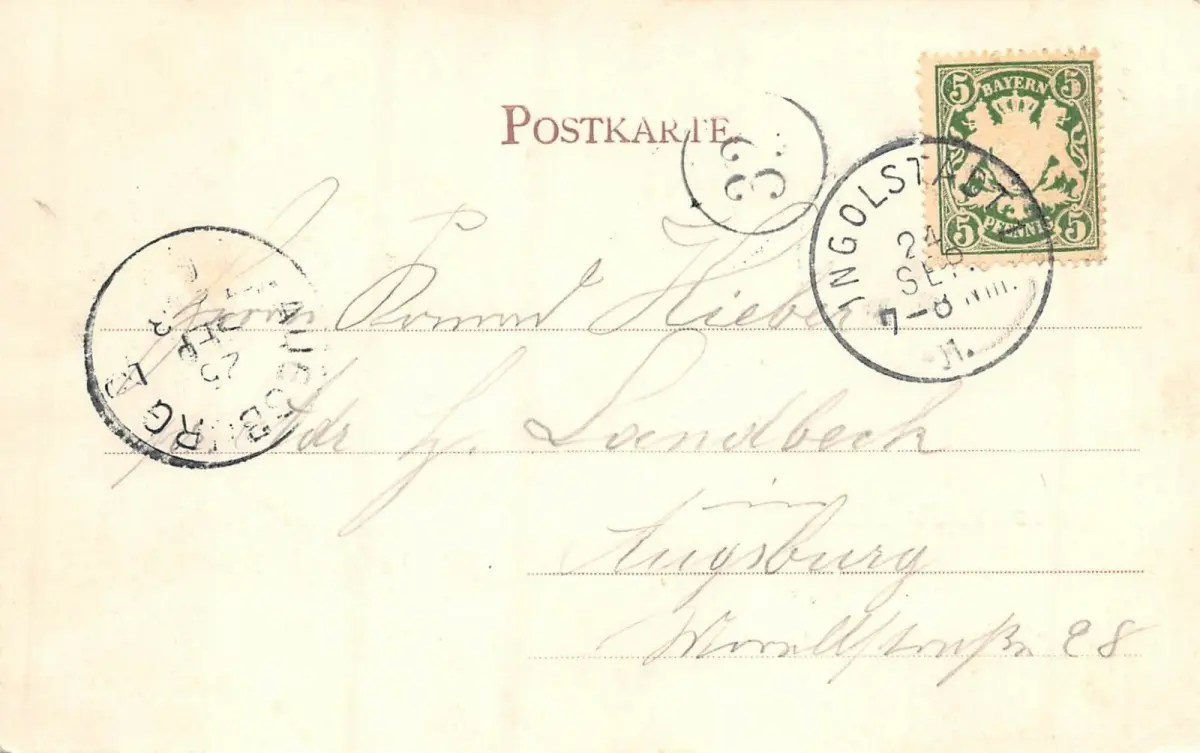 POSTKARTE
5 BAYERN 5
5 PFENNIG 5
INGOLSTADT
24
SEP.
7-8 Nm.
II.
32
AUGSBURG
25
SEP
Herrn Konrad Hieber
H. Landbeck
in
Augsburg
28